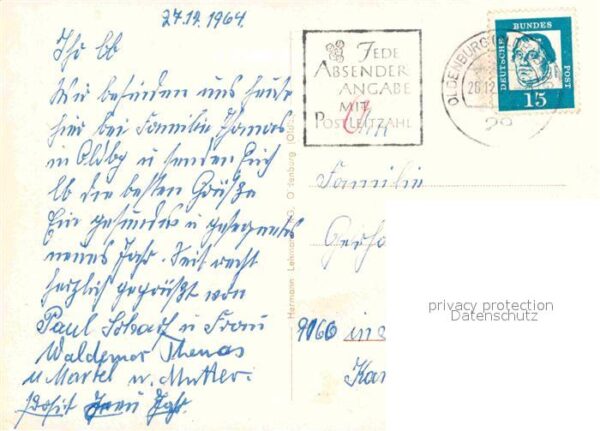 27.12.1964
Ihr Lb
Wir befinden uns heute
hier bei Familie Thomas
in Oldbg u senden Euch
lb die besten Grüße
Ein gesundes u gesegnetes
neues Jahr. Seit recht
herzlich gegrüßt von
Paul Scharf u Frau
Waldemar Thomas
u Martel u. Mutter.
Prosit Neu Jahr.
Hermann Lehmann, Oldenburg (Oldb)
JEDE
ABSENDER
ANGABE
MIT
POSTLEITZAHL
OLDENBURG
DEUTSCHE BUNDES POST
15
Familie
privacy protection
Datenschutz